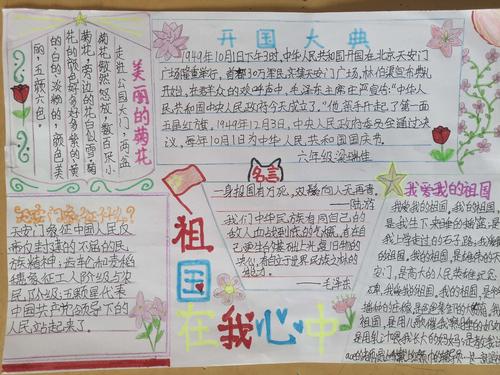 美丽的菊花
走进公园大门，两盆
菊花傲然怒放，数百朵小
菊花，旁边的花白似雪，菊
花的颜色好多好多，紫的黄
的白的淡粉的，颜色美
的，五颜六色。
开国大典
1949年10月1日下午3时，中华人民共和国开国在北京天安门
广场隆重举行，首都30万军民齐集天安门广场，林伯渠宣布典礼
开始，在群众的欢呼声中，毛泽东主席庄严宣告："中华人
民共和国中央人民政府今天成立了。"他亲手升起了第一面
五星红旗，1949年12月3日，中央人民政府委员会通过决
议，每年10月1日为中华人民共和国国庆节。
六年级 梁瑞佳
名言
一身报国有万死，双鬓向人无再青。
——陆游
我们中华民族有同自己的
敌人血战到底的气概，有在自
己更生的基础上光复旧物的
决心，有自立于世界民族之林的
能力。
——毛泽东
天安门象征什么？
天安门象征中国人民反
帝反封建的不屈的民
族精神；齿轮和麦稻
穗象征工人阶级与农
民阶级；五颗星代表
中国共产党领导下的
人民站起来了。
祖国在我心中
我爱我的祖国
我爱我的祖国，我的祖国，是
是我生下来啼的摇篮，是
我上学走过的石子路，我爱
的祖国，我的祖国，是雄伟的天
安门，是高大的人民英雄纪念
我爱我的祖国，我的祖国，是
祖国，是用儿歌催我
是用乳汁喂我长大的妈妈